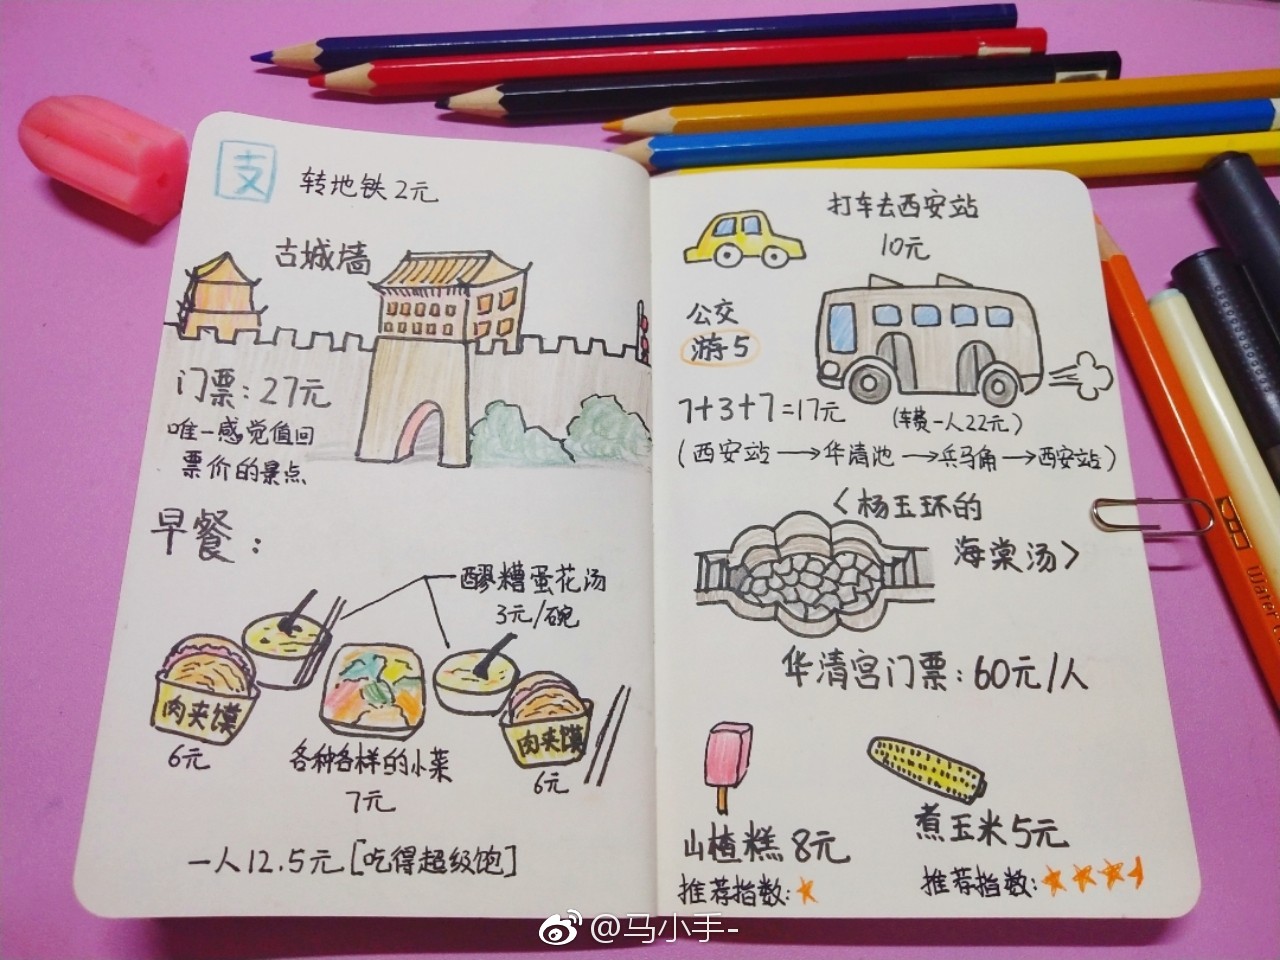 支
转地铁2元
古城墙
门票:27元
唯一感觉值回
票价的景点
早餐:
醪糟蛋花汤
3元/碗
肉夹馍
6元
各种各样的小菜
7元
肉夹馍
6元
一人12.5元[吃得超级饱]
打车去西安站
10元
公交
游5
7+3+7=17元
(车费一人22元)
(西安站→华清池→兵马俑→西安站)
<杨玉环的
海棠汤>
华清宫门票:60元/人
山楂糕8元
推荐指数:
煮玉米5元
推荐指数:
@马小手-